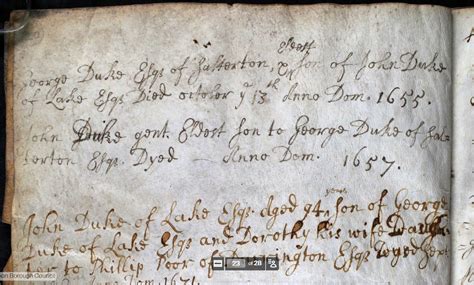 eldest
George Duke Esqr of Salterton, son of John Duke
of Lake Esqr Died october ye 13th Anno Dom. 1655.
John Duke gent. Eldest son to George Duke of Sal-
terton Esqr. Dyed — Anno Dom. 1657.
years
John Duke of Lake Esqr. aged 94 son of George
Duke of Lake Esqr and Dorothy his wife Daugh-
to Phillip poor of Esqr
on Borough Council
23 of 28